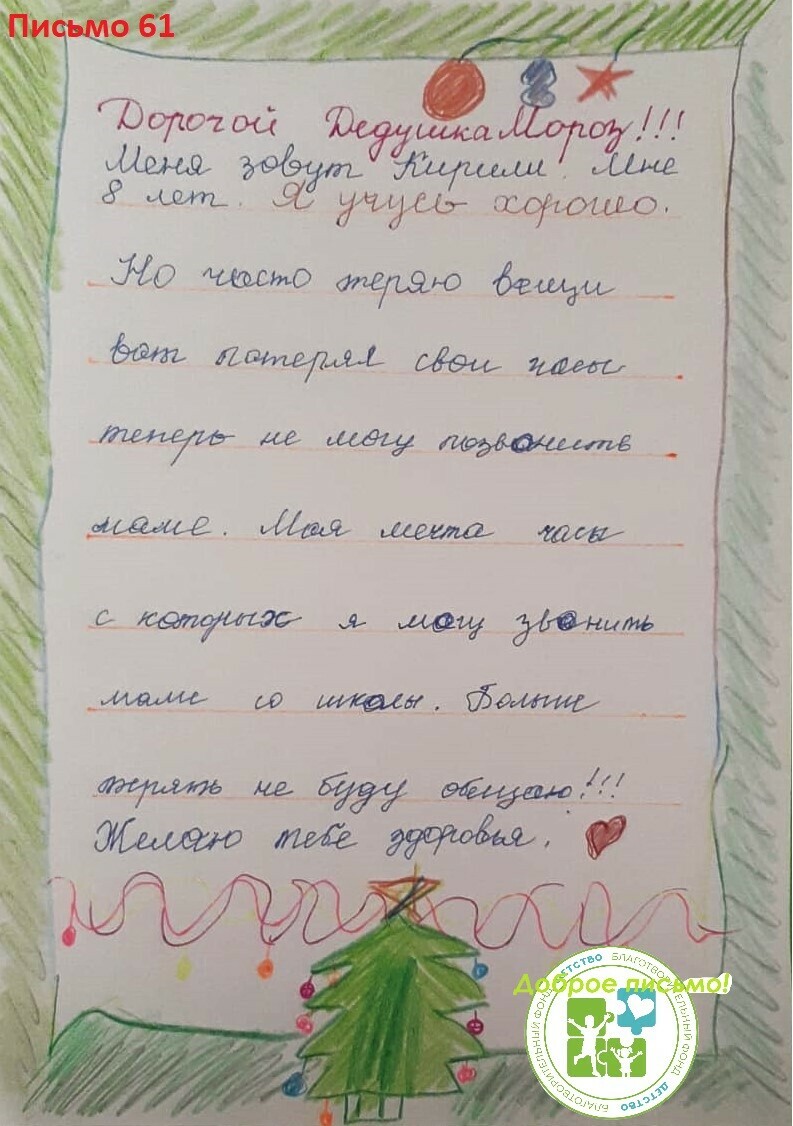 Письмо 61
Дорогой Дедушка Мороз!!!
Меня зовут Кирилл. Мне
8 лет. Я учусь хорошо.
Но часто теряю вещи
вот потерял свои часы
теперь не могу позвонить
маме. Моя мечта часы
с которых я могу звонить
маме со школы. Больше
терять не буду обещаю!!!
Желаю тебе здоровья.
Доброе письмо!
БЛАГОТВОРИТЕЛЬНЫЙ ФОНД ДЕТСТВО
БЛАГОТВОРИТЕЛЬНЫЙ ФОНД ДЕТСТВО